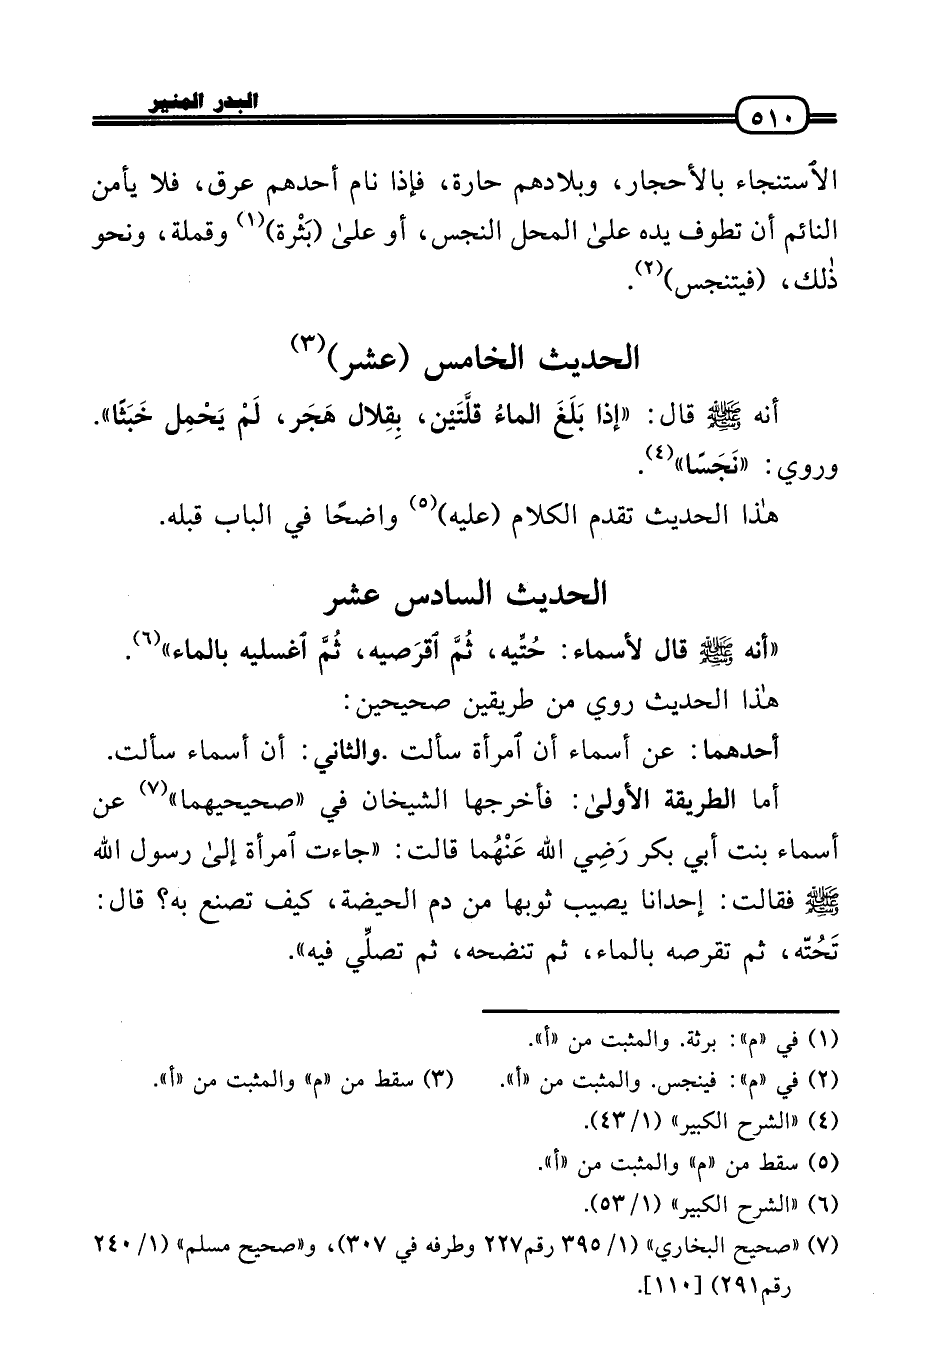 البدر المنير
٥١٠
الاستنجاء بالأحجار، وبلادهم حارة، فإذا نام أحدهم عرق، فلا يأمن
النائم أن تطوف يده علىٰ المحل النجس، أو علىٰ (بَثْرة)(١) وقملة، ونحو
ذٰلك، (فيتنجس)(٢).
الحديث الخامس (عشر)(٣)
أنه ﷺ قال: «إذا بَلَغَ الماءُ قلَّتَيْن، بِقِلال هَجَر، لَمْ يَحْمِل خَبَثًا».
وروي: «نَجَسًا»(٤).
هٰذا الحديث تقدم الكلام (عليه)(٥) واضحًا في الباب قبله.
الحديث السادس عشر
«أنه ﷺ قال لأسماء: حُتِّيه، ثُمَّ ٱقرَصيه، ثُمَّ ٱغسليه بالماء»(٦).
هٰذا الحديث روي من طريقين صحيحين:
أحدهما: عن أسماء أن ٱمرأة سألت .والثاني: أن أسماء سألت.
أما الطريقة الأولىٰ: فأخرجها الشيخان في «صحيحيهما»(٧) عن
أسماء بنت أبي بكر رَضِي الله عَنْهُما قالت: «جاءت ٱمرأة إلىٰ رسول الله
ﷺ فقالت: إحدانا يصيب ثوبها من دم الحيضة، كيف تصنع به؟ قال:
تَحُتّه، ثم تقرصه بالماء، ثم تنضحه، ثم تصلِّي فيه».
(١) في «م»: برثة. والمثبت من «أ».
(٢) في «م»: فينجس. والمثبت من «أ». (٣) سقط من «م» والمثبت من «أ».
(٤) «الشرح الكبير» (١/ ٤٣).
(٥) سقط من «م» والمثبت من «أ».
(٦) «الشرح الكبير» (١/ ٥٣).
(٧) «صحيح البخاري» (١/ ٣٩٥ رقم٢٢٧ وطرفه في ٣٠٧)، و«صحيح مسلم» (١/ ٢٤٠
رقم٢٩١) [١١٠].